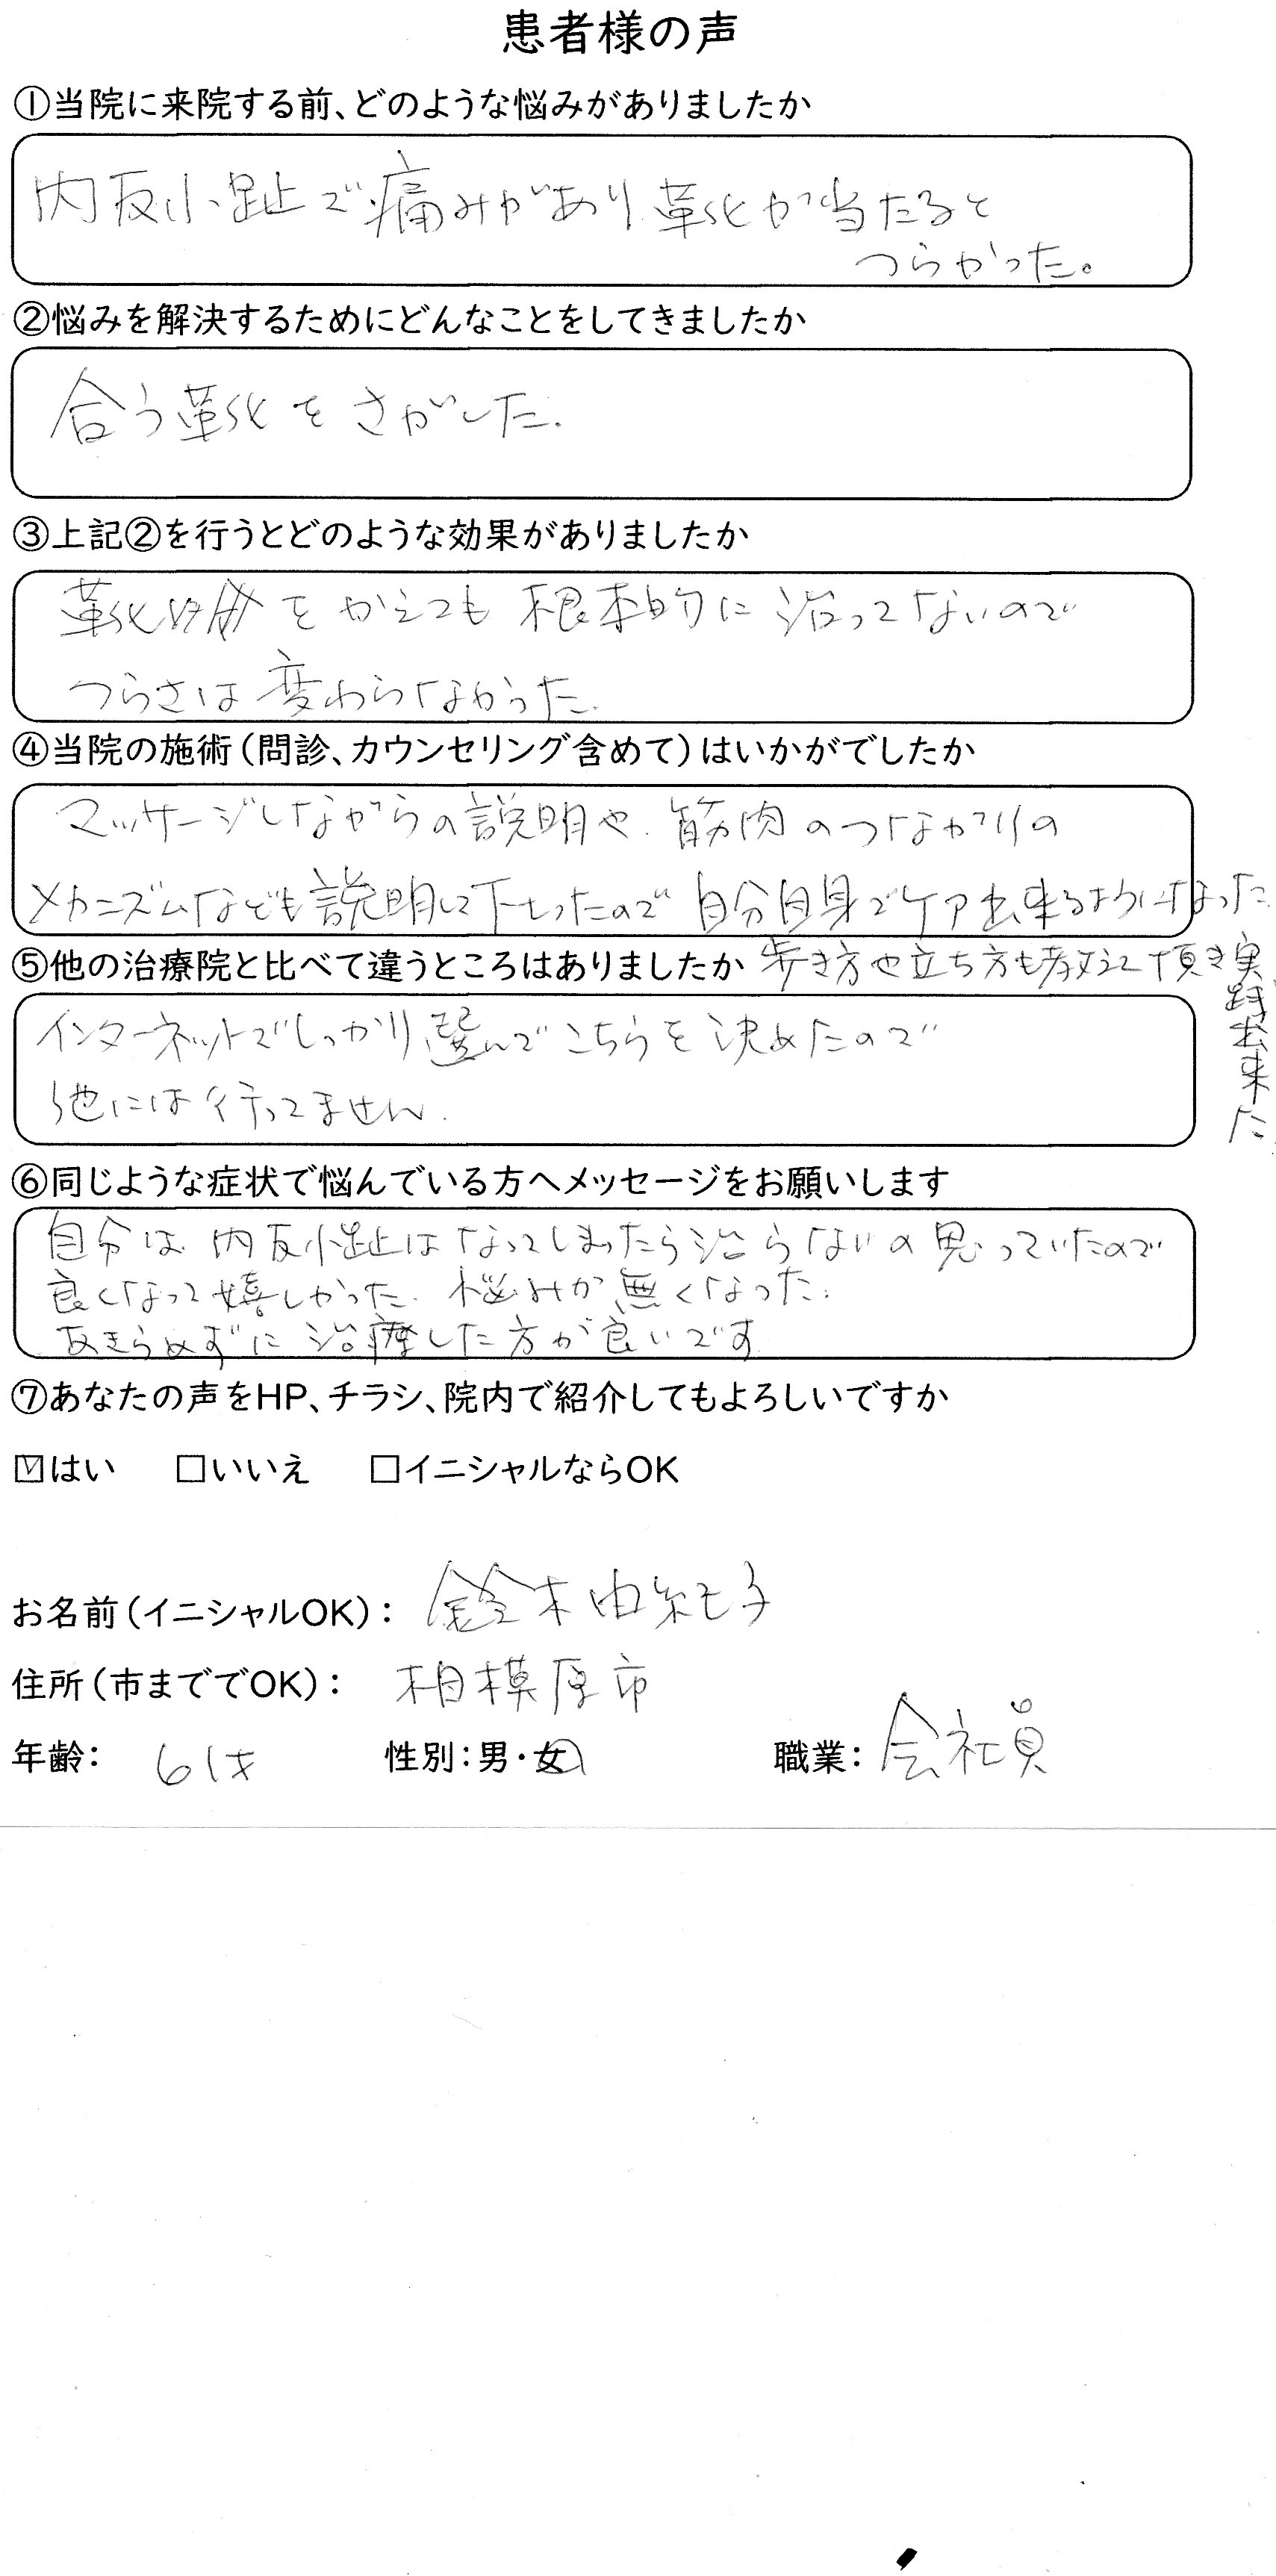 患者様の声
①当院に来院する前、どのような悩みがありましたか
内反小趾で痛みがあり靴が当たると
つらかった。
②悩みを解決するためにどんなことをしてきましたか
合う靴をさがした.
③上記②を行うとどのような効果がありましたか
靴をかえても根本的に治ってないので
つらさは変わらなかった.
④当院の施術(問診、カウンセリング含めて)はいかがでしたか
マッサージしながらの説明や.筋肉のつながりの
メカニズムなども説明して下さったので自分自身でケア出来るようになった
歩き方や立ち方も教えて頂き実践出来た.
⑤他の治療院と比べて違うところはありましたか
インターネットでしっかり選んでこちらを決めたので
他には行ってません.
⑥同じような症状で悩んでいる方へメッセージをお願いします
自分は内反小趾はなってしまったら治らないの思っていたので
良くなって嬉しかった.悩みが無くなった.
あきらめずに治療した方が良いです
⑦あなたの声をHP、チラシ、院内で紹介してもよろしいですか
☑はい □いいえ □イニシャルならOK
お名前(イニシャルOK): 鈴木由紀子
住所(市まででOK): 相模原市
年齢: 61才 性別:男・女 職業: 会社員